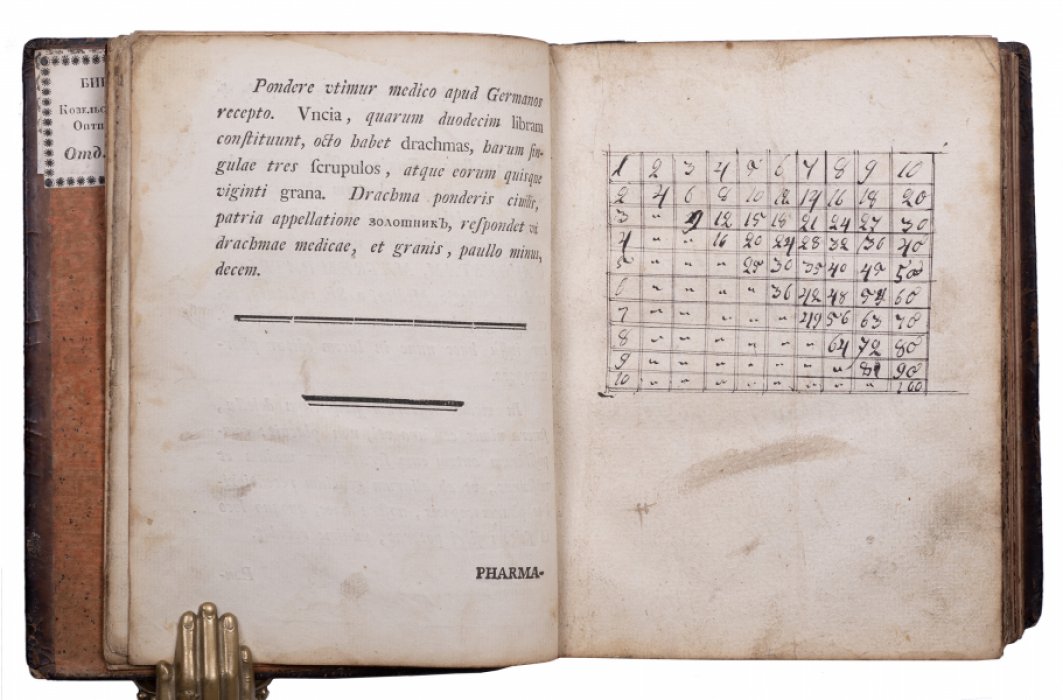 БИ
Козельс
Опти
Отд.
Pondere vtimur medico apud Germanos
recepto. Vncia, quarum duodecim libram
conſtituunt, octo habet drachmas, harum ſin-
gulae tres ſcrupulos, atque eorum quisque
viginti grana. Drachma ponderis ciuilis,
patria appellatione золотникъ, reſpondet vni
drachmae medicae, et granis, paullo minus,
decem.
PHARMA-
1 2 3 4 5 6 7 8 9 10
2 4 6 8 10 12 14 16 18 20
3 " 9 12 15 18 21 24 27 30
4 " " 16 20 24 28 32 36 40
5 " " " 25 30 35 40 45 50
6 " " " " 36 42 48 54 60
7 " " " " " 49 56 63 70
8 " " " " " " 64 72 80
9 " " " " " " " 81 90
10 " " " " " " " " 100